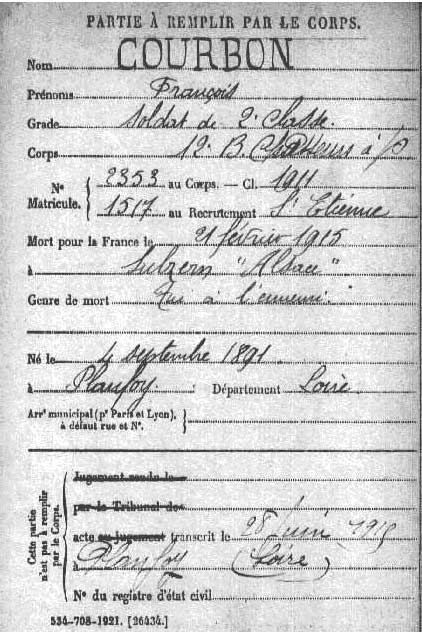 PARTIE À REMPLIR PAR LE CORPS.
Nom COURBON
Prénoms François
Grade Soldat de 2e Classe
Corps 12e B. Chasseurs à p
N° Matricule. { 2353 au Corps. — Cl. 1911
1517 au Recrutement St Etienne
Mort pour la France le 21 février 1915
à Sulzern "Alsace"
Genre de mort Tué à l'ennemi.
Né le 4 septembre 1891.
à Planfoy Département Loire
Arrt municipal (pr Paris et Lyon), à défaut rue et N°. }
Cette partie n'est pas à remplir par le Corps. {
Jugement rendu le
par le Tribunal de
acte ou jugement transcrit le 28 Juin 1915
à Planfoy (Loire)
N° du registre d'état civil
534-708-1921. [26434.]